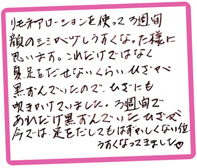 リモネアローションを使って3週間
顔のシミが少しうすくなった様に
思います。これだけではなく
夏足をだせないくらいひざが
黒ずんでいたので、ひざにも
吹きかけていました。3週間で
あれだけ黒ずんでいたひざが
今では、足をだしてもはずかしくない位
うすくなってきました♡